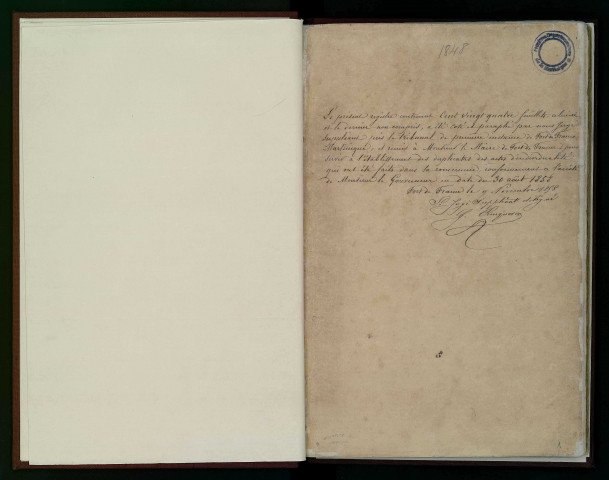 1848
Le présent registre contenant Cent vingt quatre feuillets
et le dernier non compris, a été coté et paraphé par nous Juge
Suppléant près le tribunal de première instance de Fort de France
Martinique, et remis à Monsieur le Maire de Fort de France, pour
servir à l'établissement des duplicata des actes d'individualité
qui ont été faits dans la commune, conformément à l'arrêté
de Monsieur le Gouverneur en date du 30 août 1852
Fort de France le 9 Novembre 1858
Le Juge Suppléant délégué